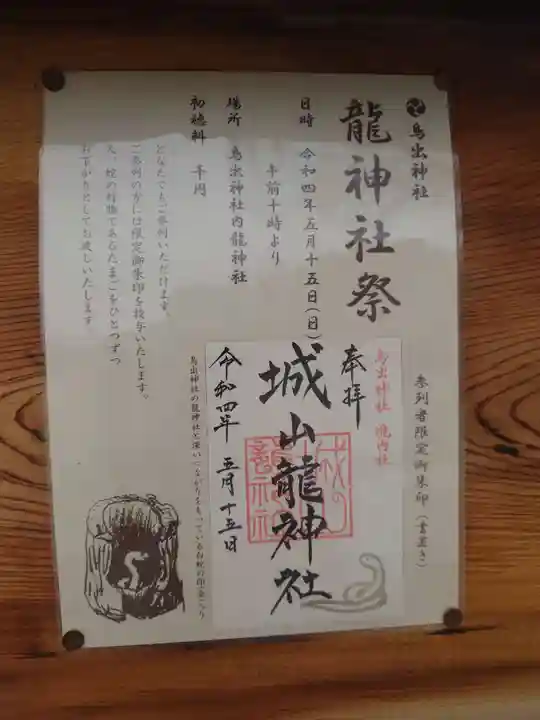 鳥出神社
龍神社祭
日時 令和四年五月十五日(日)
午前十時より
場所 鳥出神社内龍神社
初穂料 千円
どなたでもご参列いただけます。
ご参列の方には限定御朱印を授与いたします。
又、蛇の好物であるたまごをひとつずつ
お下がりとしてお渡しいたします
参列者限定御朱印(書置き)
鳥出神社 境内社
奉拝
城山龍神社
令和四年 五月十五日
鳥出神社の龍神社と深いつながりをもっている白蛇の印